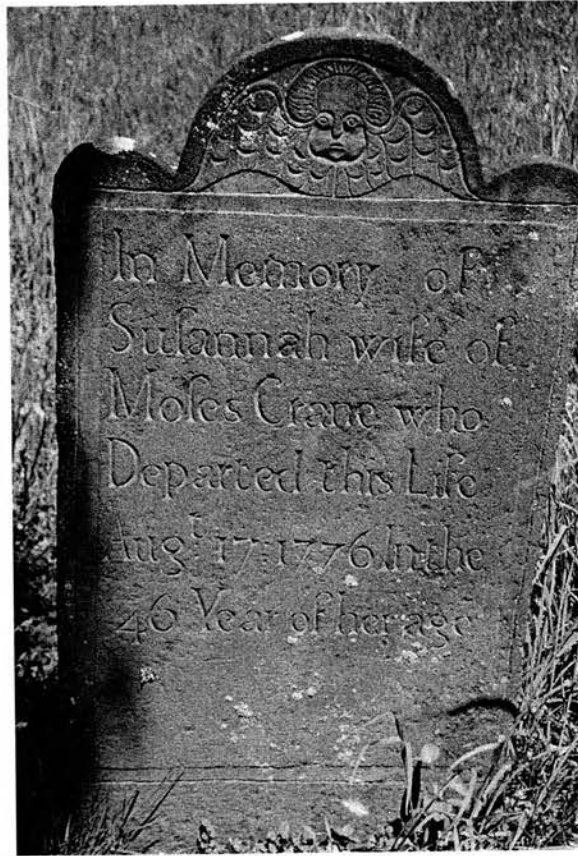 In Memory of
Suſannah wife of
Moſes Crane who
Departed this Life
Augt 17:1776 In the
46 Year of her age